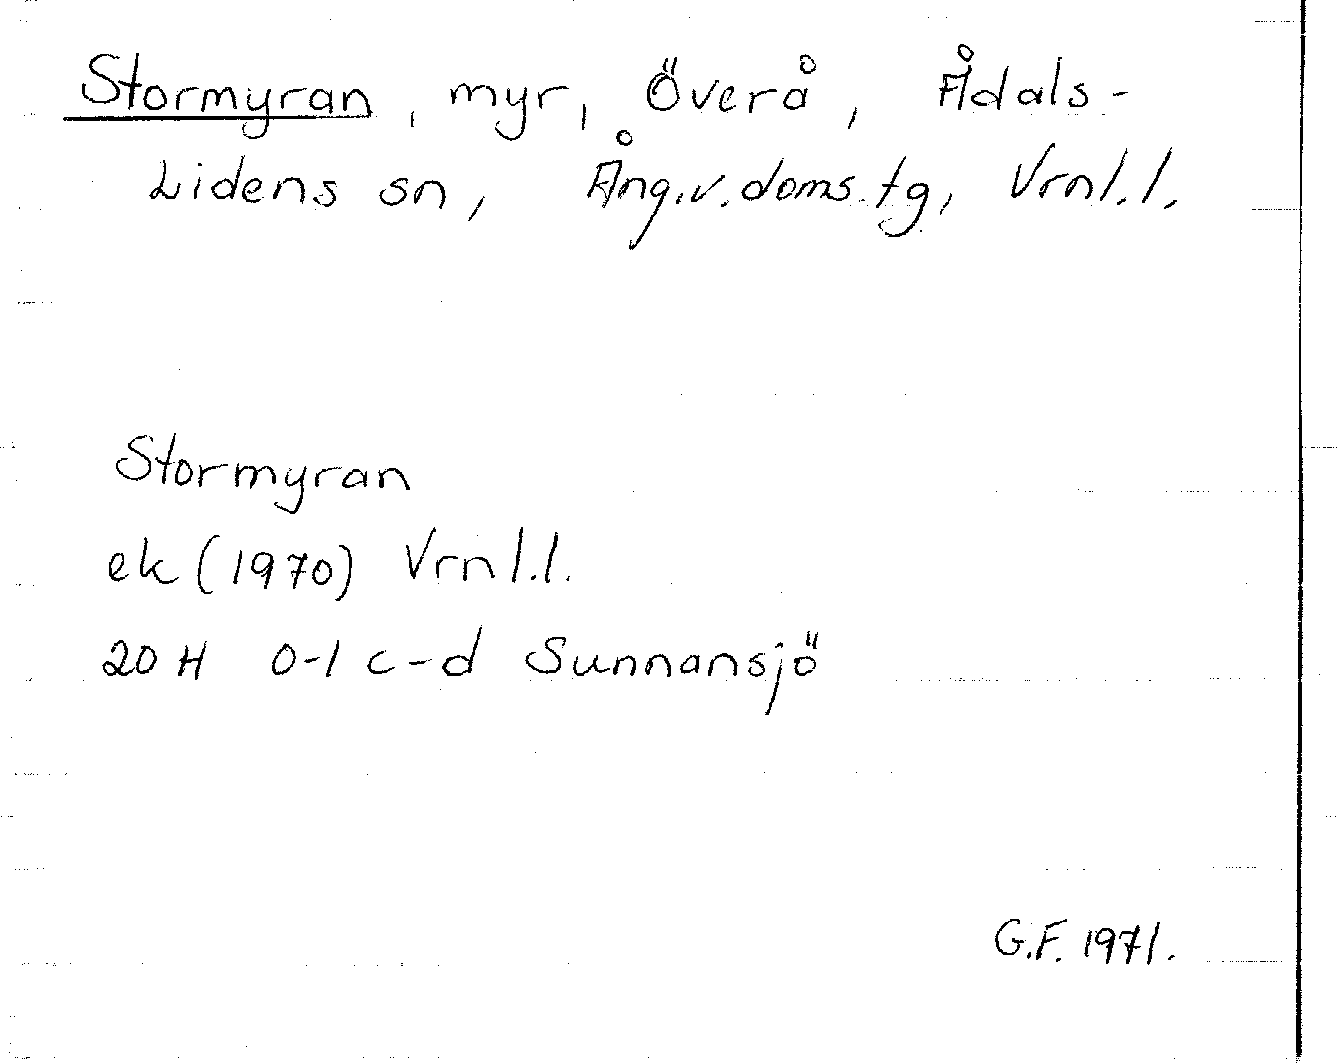 Stormyran, myr, Överå, Ådals-
Lidens sn, Ång.v.doms.tg, Vrnl.l.
Stormyran
ek (1970) Vrnl.l.
20 H 0-1 c-d Sunnansjö
G.F. 1971.